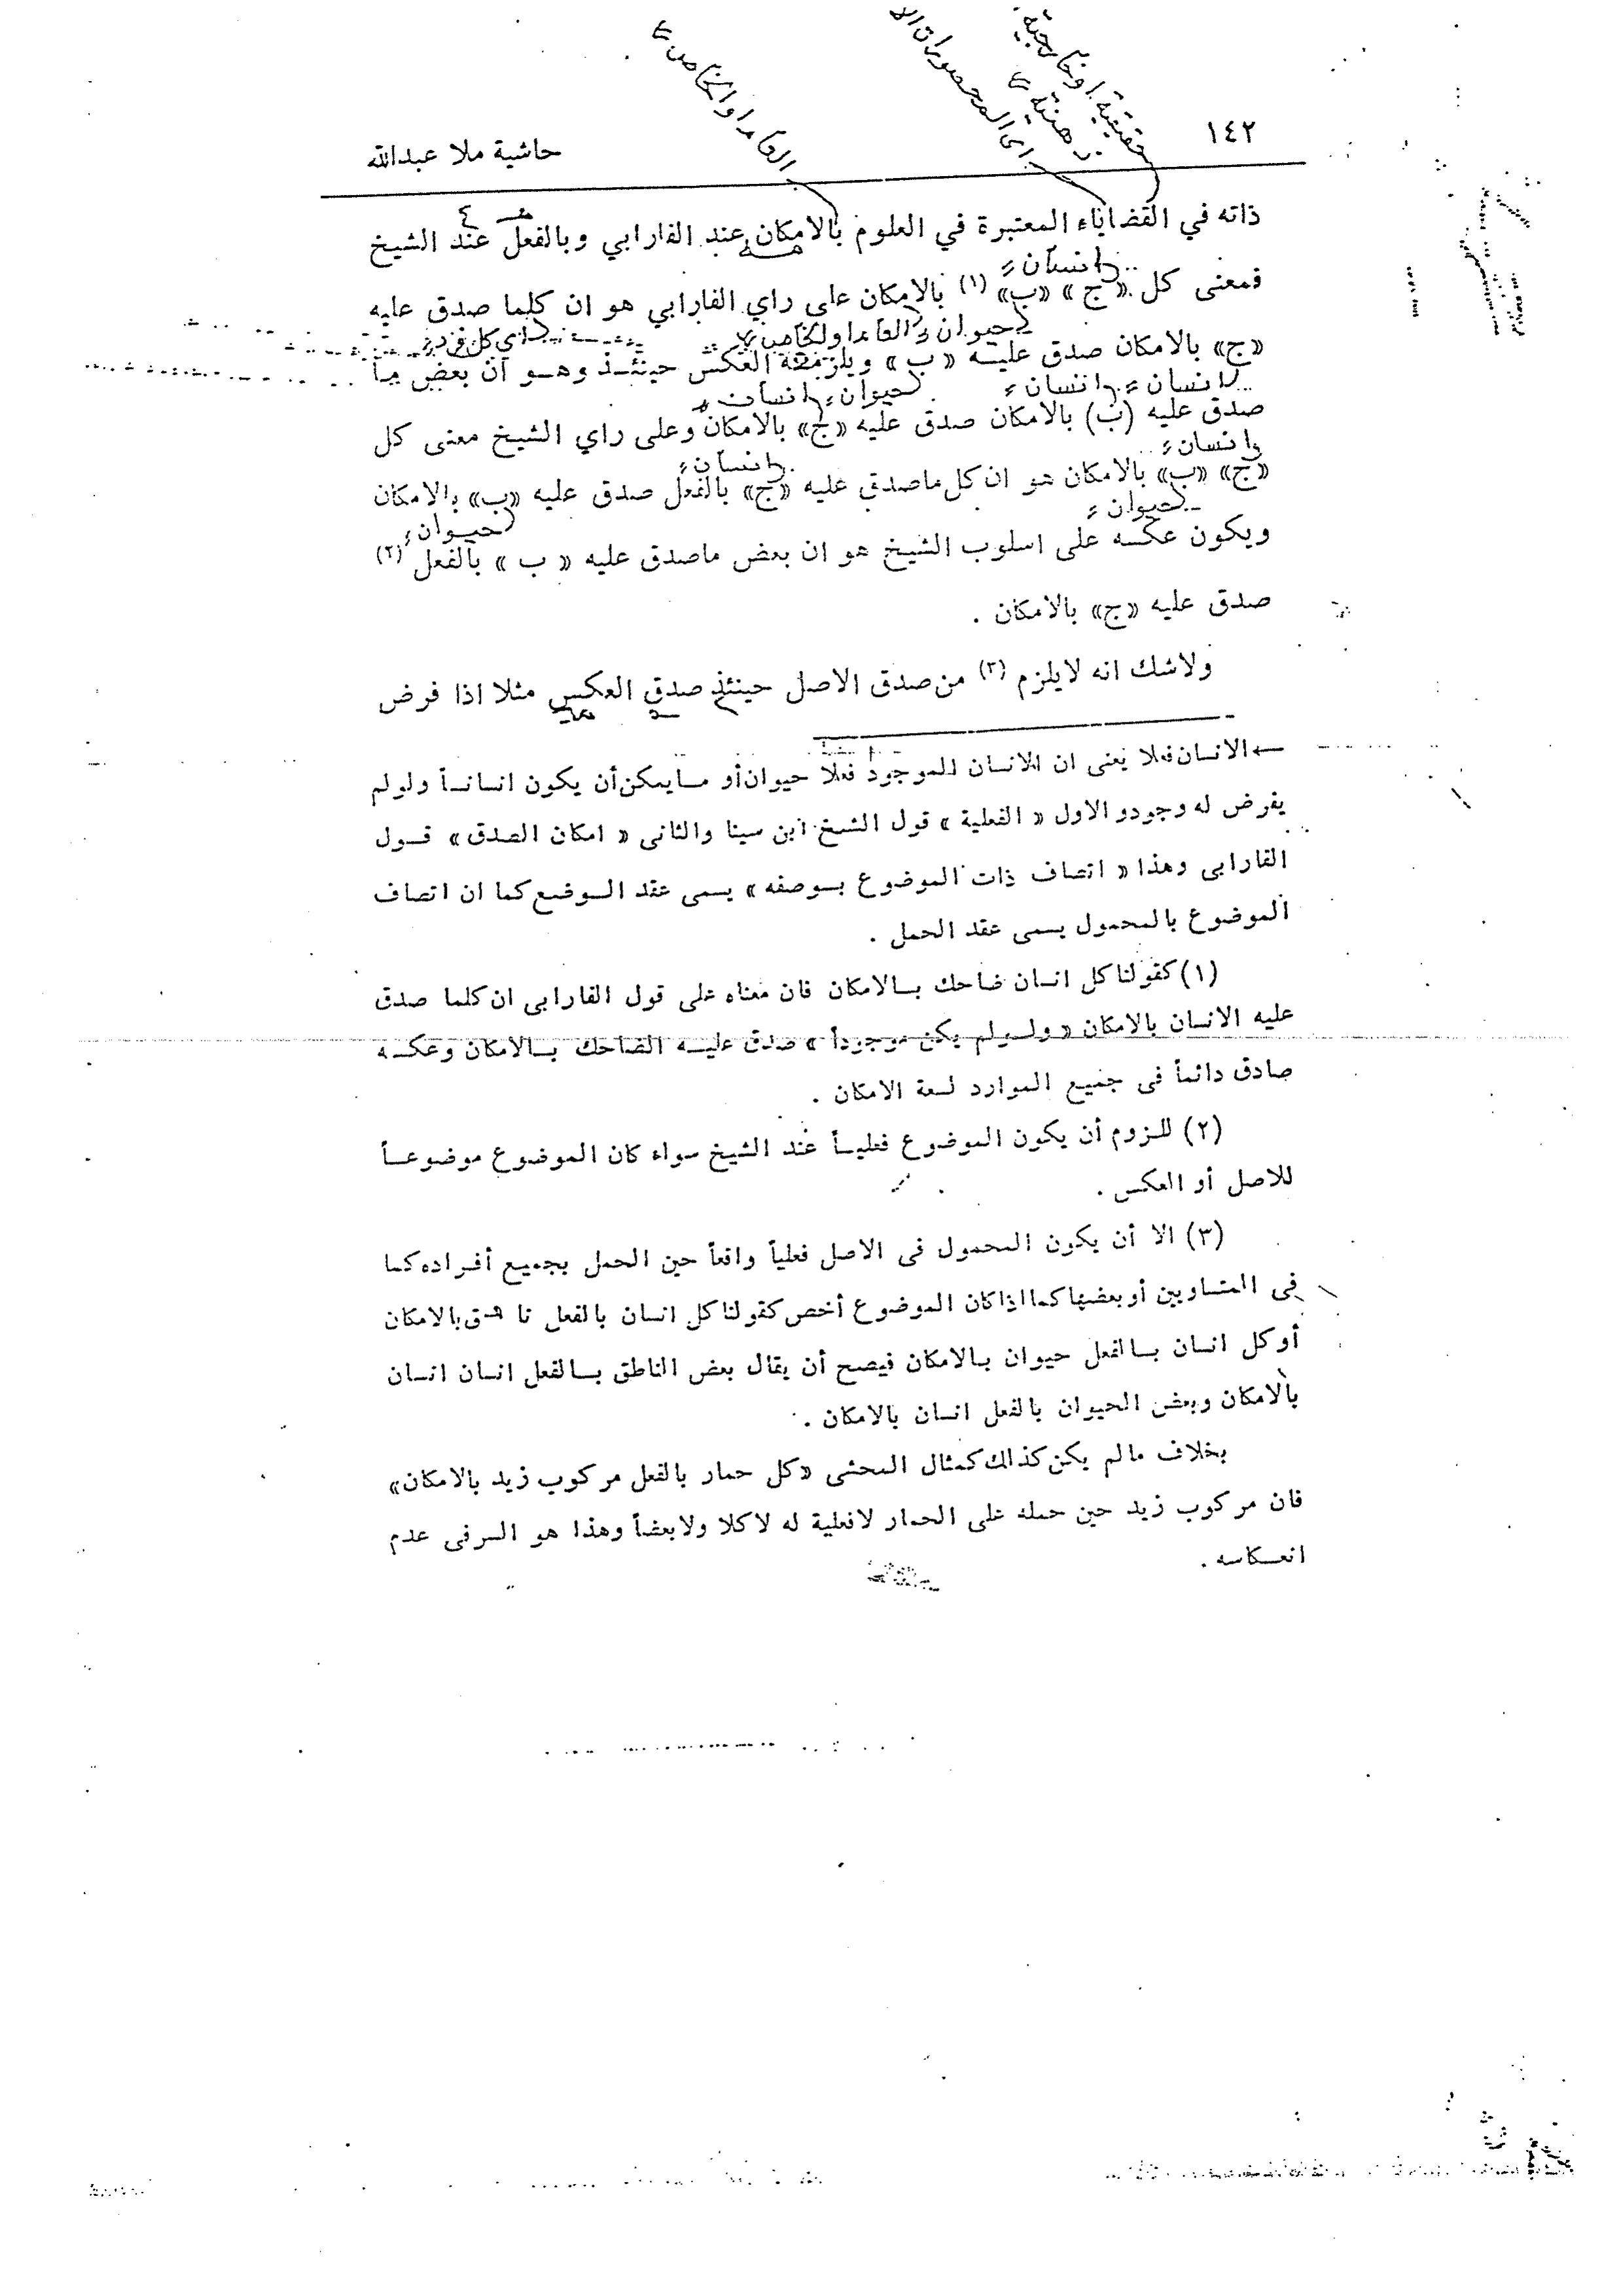 ١٤٢
حاشية ملا عبدالله
ذاته في القضاياء المعتبرة في العلوم بالامكان عند الفارابي وبالفعل عند الشيخ
انسان
فمعنى كل «ج» «ب» (١) بالامكان على راي الفارابي هو ان كلما صدق عليه
حيوان
«ج» بالامكان صدق عليه «ب» ويلزمه العكس حينئذ وهو ان بعض ما
انسان انسان حيوان انسان
صدق عليه (ب) بالامكان صدق عليه «ج» بالامكان وعلى راي الشيخ معنى كل
انسان انسان
«ج» «ب» بالامكان هو ان كل ماصدق عليه «ج» بالفعل صدق عليه «ب» بالامكان
حيوان حيوان
ويكون عكسه على اسلوب الشيخ هو ان بعض ماصدق عليه «ب» بالفعل (٢)
صدق عليه «ج» بالامكان .
ولاشك انه لايلزم (٣) من صدق الاصل حينئذ صدق العكس مثلا اذا فرض
← الانسان فعلا يعنى ان الانسان الموجود فعلا حيوان أو مايمكن أن يكون انساناً ولولم
يفرض له وجود والاول «الفعلية» قول الشيخ ابن سينا والثانى «امكان الصدق» قول
الفارابى وهذا «اتصاف ذات الموضوع بوصفه» يسمى عقد الوضع كما ان اتصاف
الموضوع بالمحمول يسمى عقد الحمل .
(١) كقولنا كل انسان ضاحك بالامكان فان معناه على قول الفارابى ان كلما صدق
عليه الانسان بالامكان «ولولم يكن موجوداً» صدق عليه الضاحك بالامكان وعكسه
صادق دائماً فى جميع الموارد لسعة الامكان .
(٢) للزوم أن يكون الموضوع فعلياً عند الشيخ سواء كان الموضوع موضوعاً
للاصل أو العكس .
(٣) الا أن يكون المحمول فى الاصل فعلياً واقعاً حين الحمل بجميع أفراده كما
فى المتساويين أو بعضها كما اذا كان الموضوع أخص كقولنا كل انسان بالفعل ناطق بالامكان
أو كل انسان بالفعل حيوان بالامكان فيصح أن يقال بعض الناطق بالفعل انسان انسان
بالامكان وبعض الحيوان بالفعل انسان بالامكان .
بخلاف مالم يكن كذالك كمثال المحشى «كل حمار بالفعل مركوب زيد بالامكان»
فان مركوب زيد حين حمله على الحمار لافعلية له لاكلا ولابعضاً وهذا هو السرفى عدم
انعكاسه .